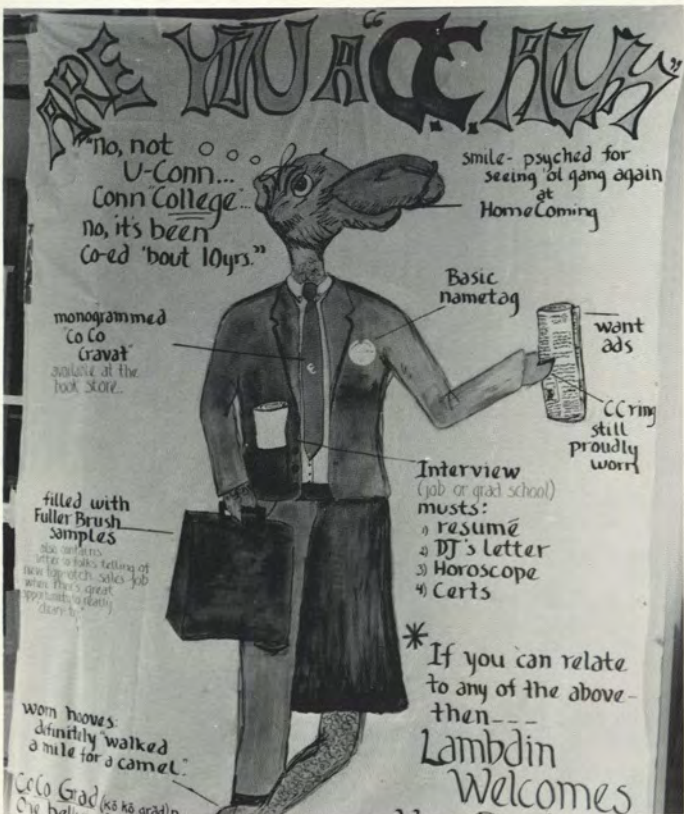 ARE YOU A "C.C. ALUM"
"no, not
U-Conn...
Conn "College"...
no, it's been
Co-ed 'bout 10yrs."
smile- psyched for
seeing 'ol gang again
at
HomeComing
Basic
nametag
monogrammed
"Co Co
Cravat"
available at the
book store...
want
ads
CC ring
still
proudly
worn
Interview
(job or grad school)
musts:
1) resumé
2) DJ's letter
3) Horoscope
4) Certs
filled with
Fuller Brush
samples
also contains
letter to folks telling of
new topnotch sales job
great
opportunity
worn hooves:
definitely "walked
a mile for a camel."
* If you can relate
to any of the above-
then---
Lambdin
Welcomes
CoCo Grad (kō kō grăd) n.
One